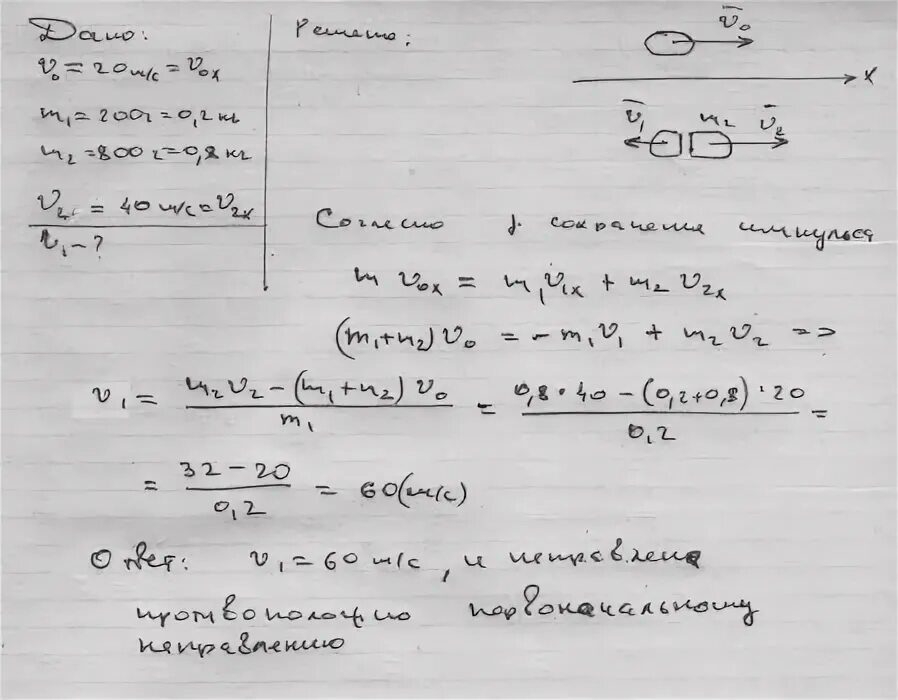 Дано:
v₀ = 20 м/с = v₀ₓ
m₁ = 200г = 0,2 кг
m₂ = 800 г = 0,8 кг
v₂ = 40 м/с = v₂ₓ
v₁ - ?
Решено:
v̄₀
x
v̄₁ m₂ v̄₂
Согласно з. сохранения импульса
m v₀ₓ = m₁v₁ₓ + m₂ v₂ₓ
(m₁+m₂) v₀ = - m₁v₁ + m₂ v₂ =>
v₁ = (m₂v₂ - (m₁+m₂) v₀) / m₁ = (0,8 · 40 - (0,2+0,8) · 20) / 0,2 =
= (32 - 20) / 0,2 = 60 (м/с)
Ответ: v₁ = 60 м/с, и направлена
противоположно первоначальному
направлению